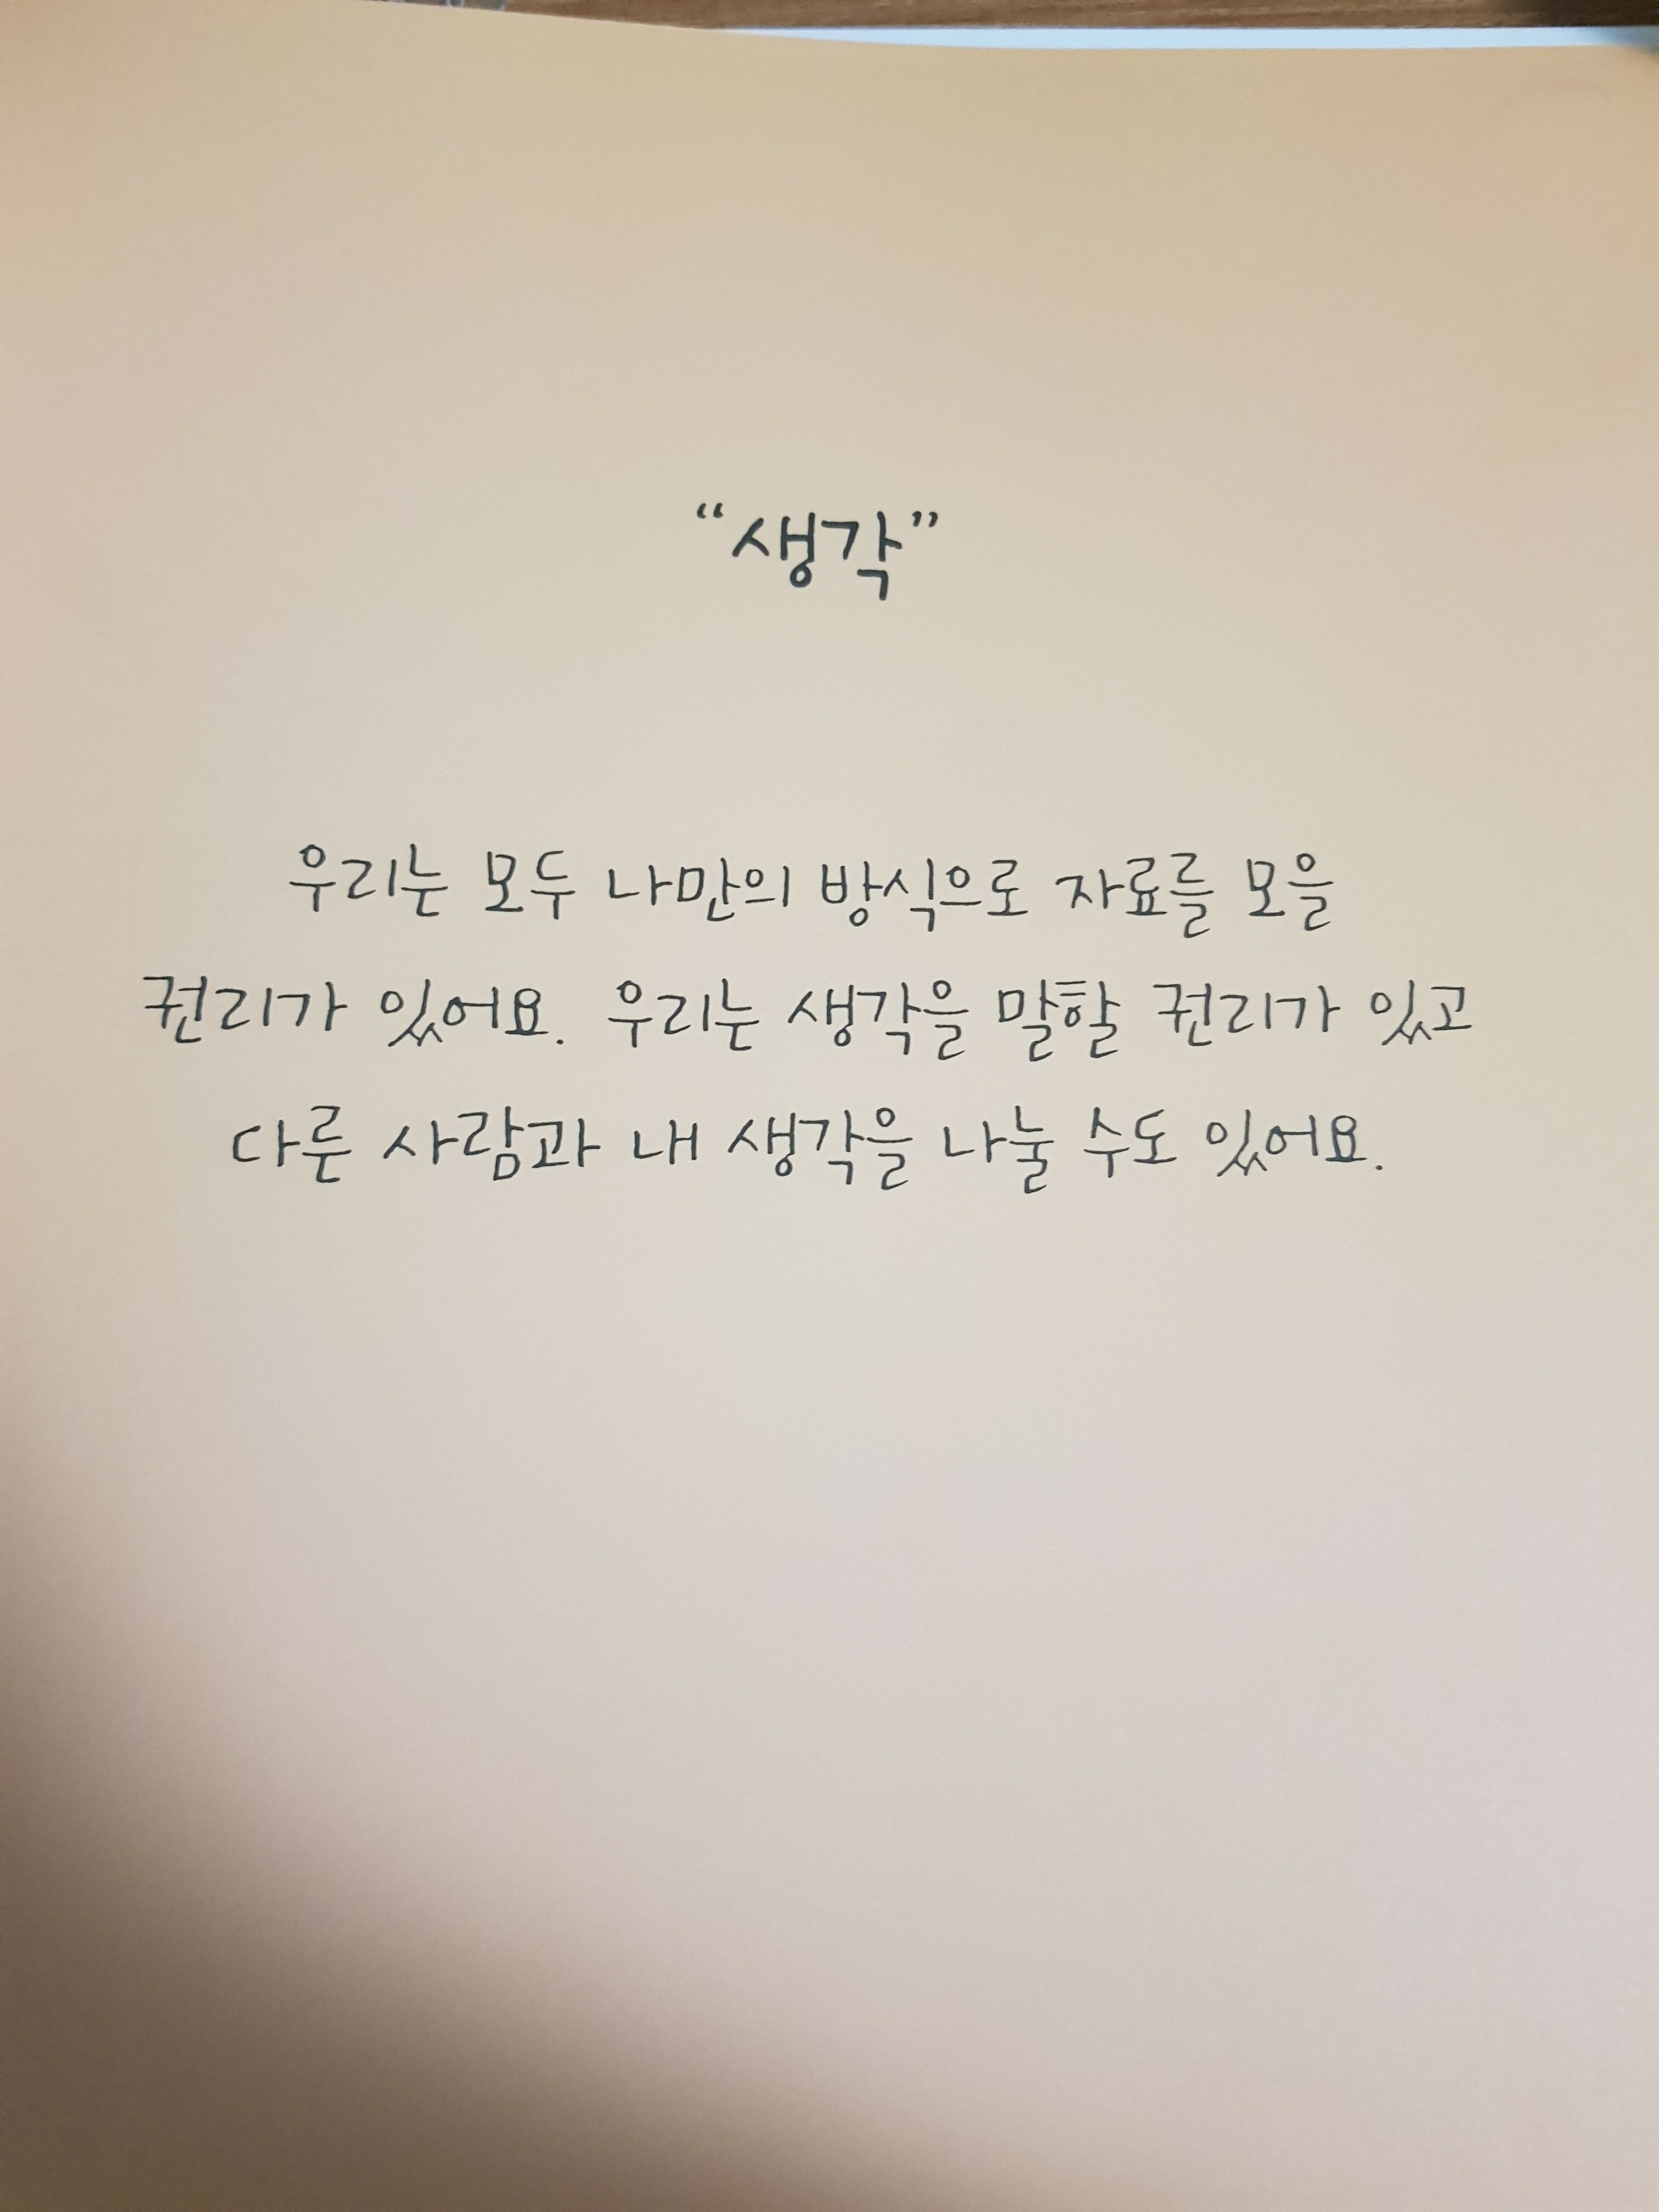 “생각”
우리는 모두 나만의 방식으로 자료를 모을
권리가 있어요. 우리는 생각을 말할 권리가 있고
다른 사람과 내 생각을 나눌 수도 있어요.